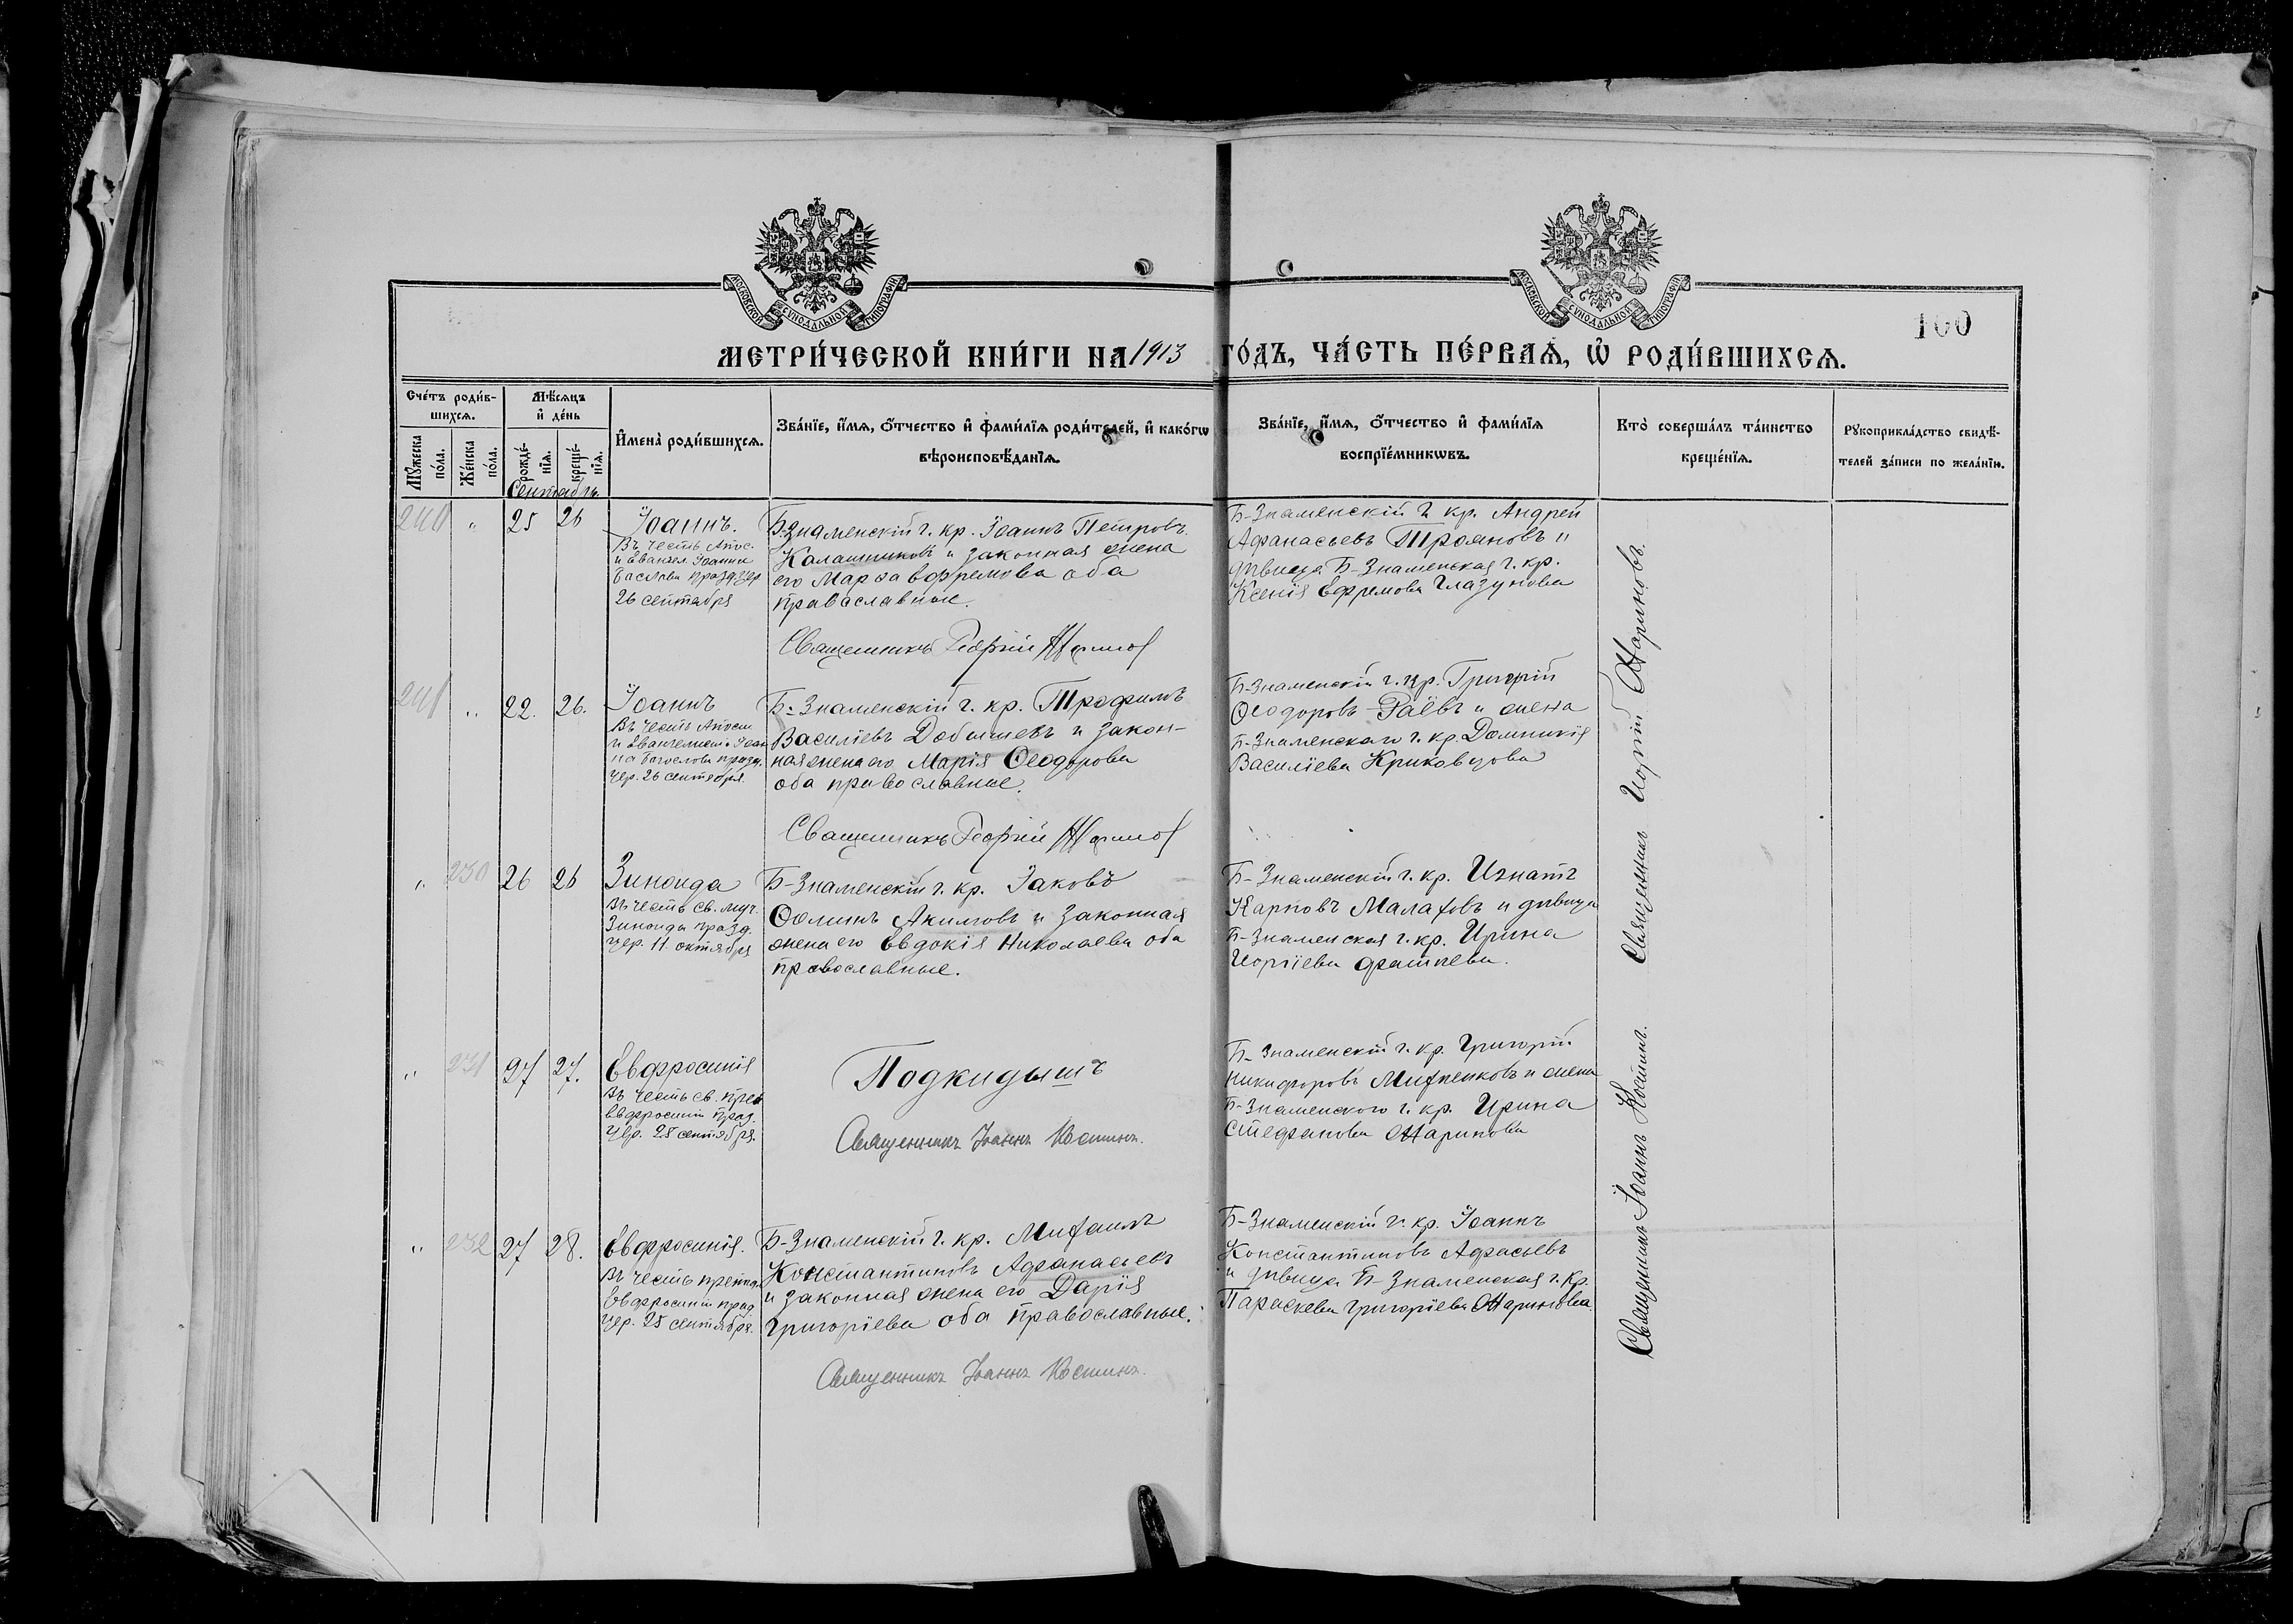 МОСКОВСКОЙ СѴНОДАЛЬНОЙ ТИПОГРАФІИ
МОСКОВСКОЙ СѴНОДАЛЬНОЙ ТИПОГРАФІИ
100
МЕТРИ́ЧЕСКОЙ КНИ́ГИ НА 1913 ГО́ДЪ, ЧА́СТЬ ПЕ́РВАѦ, Ѡ҆ РОДИ́ВШИХСѦ.
Сче́тъ роди́в-
шихсѧ.
Мꙋ́жеска по́ла.
Же́нска по́ла.
Мѣ́сѧцъ
и҆ де́нь
рожде́-
нїѧ.
креще́-
нїѧ.
И҆мена̀ роди́вшихсѧ.
Зва́нїе, и҆́мѧ, ѻ҆́тчество и҆ фами́лїѧ роди́телей, и҆ како́гѡ
вѣроисповѣ́данїѧ.
Зва́нїе, и҆́мѧ, ѻ҆́тчество и҆ фами́лїѧ
воспрїе́мникѡвъ.
Кто̀ соверша́лъ та́инство
креще́нїѧ.
Рꙋкоприкла́дство свидѣ́-
телей за́писи по жела́нїю.
Сентябрь.
240 " 25 26
Іоаннъ.
Въ честь Апос.
и Евангел Іоанна
Баслова празд чер
26 сентября
Б-Знаменскій г. кр. Іоаннъ Петровъ
Калашниковъ и законная жена
его Марѳа Ефремова оба
православные.
Священникъ Георгій
Б-Знаменскій г. кр. Андрей
Афанасьевъ Трояновъ и
дѣвица Б-Знаменская г. кр.
Ксенія Ефремова Глазунова
241 " 22. 26.
Іоаннъ
Въ честь Апост
и Евангелист. Іоан
на Богослова празд.
чер. 26 сентября.
Б-Знаменскій г. кр. Трофимъ
Василіевъ Добышевъ и закон-
ная жена его Марія Ѳеодорова
оба православные.
Священникъ Георгій
Б-Знаменскій г. кр. Григорій
Ѳеодоровъ Раевъ и жена
Б-Знаменскаго г. кр. Домникія
Василіева Криковцова
" 230 26 26
Зинаида
Въ честь св. муч.
Зинаиды празд.
чер. 11 октября
Б-Знаменскій г. кр. Іаковъ
Ѳоминъ Акимовъ и законная
жена его Евдокія Николаева оба
православные.
Б-Знаменскій г. кр. Игнатъ
Карповъ Малаховъ и дѣвица
Б-Знаменская г. кр. Ирина
Георгіева
" 231 27 27.
Евфросинія
Въ честь св. преп
Евфросиніи празд.
чер. 25 сентября.
Подкидышъ
Священникъ Іоаннъ Костинъ.
Б-Знаменскій г. кр. Григорій
Никифоровъ и жена
Б-Знаменскаго г. кр. Ирина
Стефанова Жаринова
" 232 27 28.
Евфросинія.
Въ честь препод
Евфросиніи празд
чер. 25 сентября.
Б-Знаменскій г. кр. Михаилъ
Константиновъ Афанасьевъ
и законная жена его Дарія
Григоріева оба православные.
Священникъ Іоаннъ Костинъ.
Б-Знаменскій г. кр. Іоаннъ
Константиновъ
и дѣвица Б-Знаменская г. кр.
Параскева Григоріева Жаринова
Священник Георгій Жариновъ.
Священникъ Іоаннъ Костинъ.